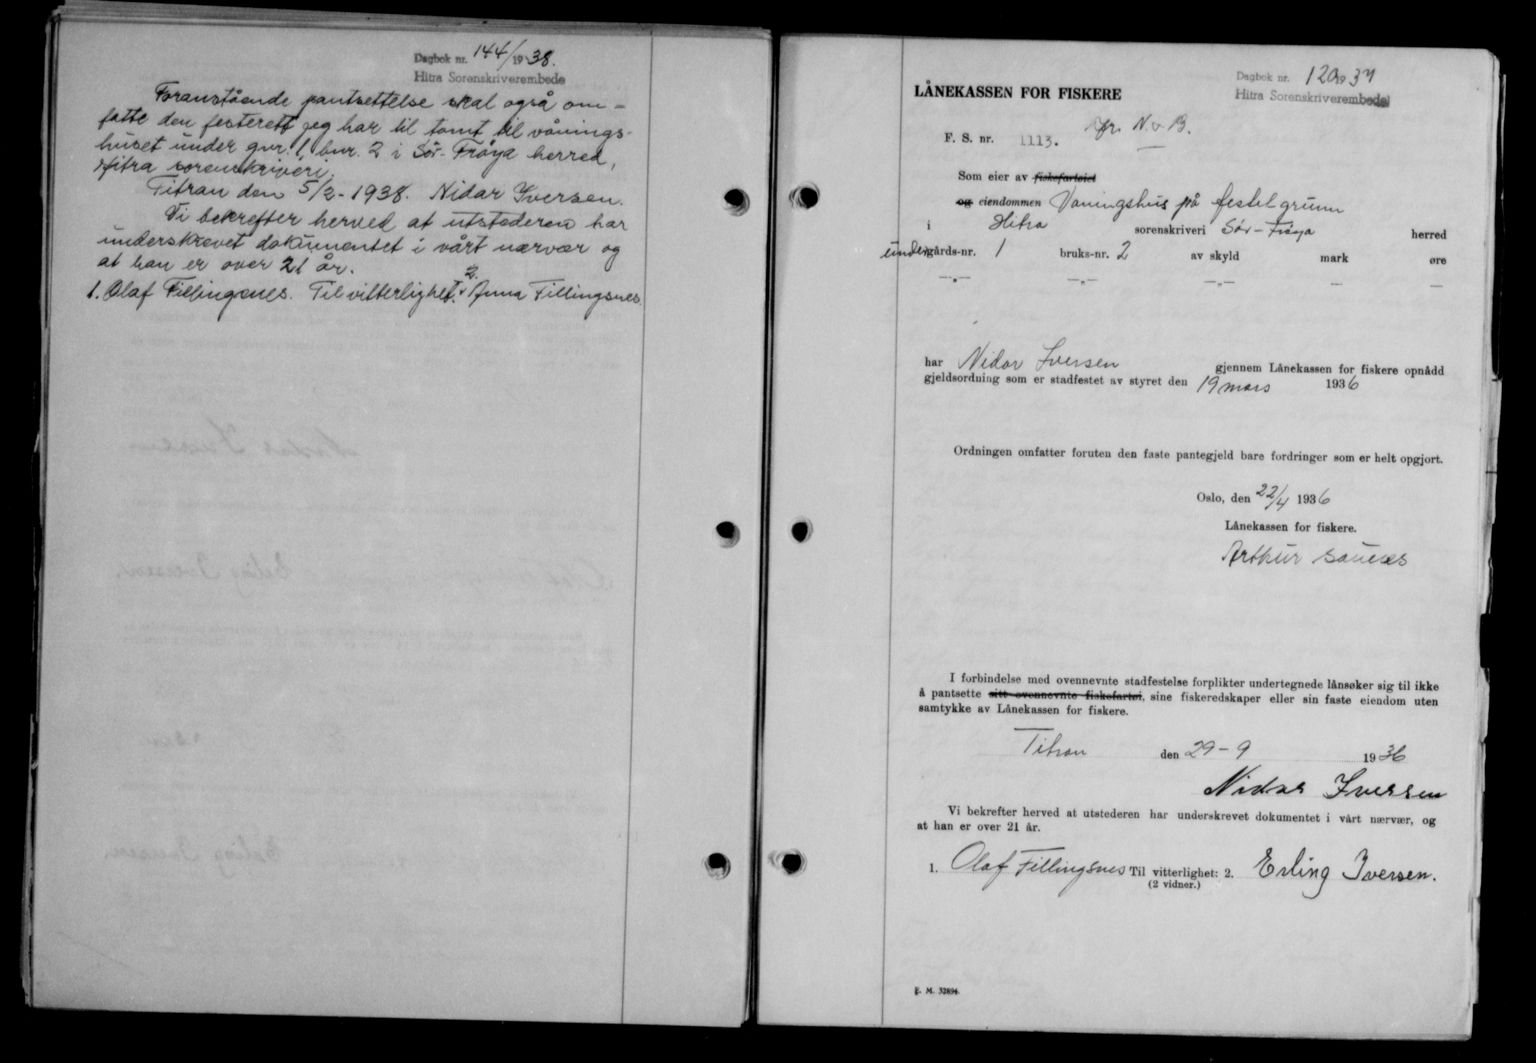 Dagbok nr. 144/1938.
Hitra Sorenskriverembede
Foranstående pantsettelse skal også om-
fatte den festerett jeg har til tomt til vånings-
huset under gnr. 1, bnr. 2 i Sør-Frøya herred,
Hitra sorenskriveri.
Titran den 5/2-1938. Nidar Iversen.
Vi bekrefter herved at utstederen har
underskrevet dokumentet i vårt nærvær og
at han er over 21 år.
1. Olaf Fillingsnes. Til vitterlighet: 2. Anna Fillingsnes.
Dagbok nr. 120 1937
Hitra Sorenskriverembede
LÅNEKASSEN FOR FISKERE
F. S. nr. 1113. Nr. N. B.
Som eier av fiskefartøiet
og eiendommen Våningshus på festet grunn
i Hitra sorenskriveri Sør-Frøya herred
under gårds-nr. 1 bruks-nr. 2 av skyld mark øre
—„— —„— —„— — —
har Nidar Iversen gjennem Lånekassen for fiskere opnådd
gjeldsordning som er stadfestet av styret den 19 mars 1936
Ordningen omfatter foruten den faste pantegjeld bare fordringer som er helt opgjort.
Oslo, den 22/4 1936
Lånekassen for fiskere.
Arthur
I forbindelse med ovennevnte stadfestelse forplikter undertegnede lånsøker sig til ikke
å pantsette sitt ovennevnte fiskefartøi, sine fiskeredskaper eller sin faste eiendom uten
samtykke av Lånekassen for fiskere.
Titran den 29-9 1936
Nidar Iversen
Vi bekrefter herved at utstederen har underskrevet dokumentet i vårt nærvær, og
at han er over 21 år.
1. Olaf Fillingsnes Til vitterlighet: 2. Erling Iversen.
(2 vidner.)
E. M. 32894.